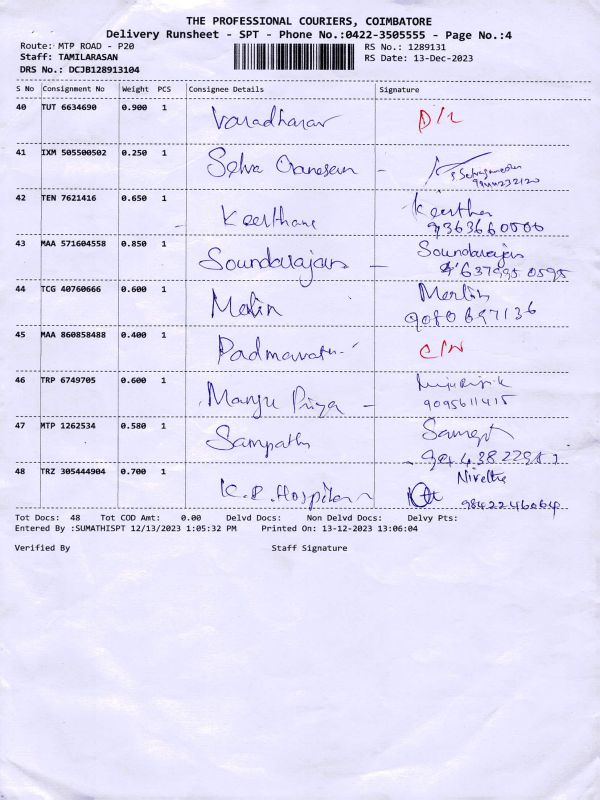 THE PROFESSIONAL COURIERS, COIMBATORE
Delivery Runsheet - SPT - Phone No.:0422-3505555 - Page No.:4
Route: MTP ROAD - P20 RS No.: 1289131
Staff: TAMILARASAN RS Date: 13-Dec-2023
DRS No.: DCJB128913104
S No Consignment No Weight PCS Consignee Details Signature
40 TUT 6634690 0.900 1 Varadharar D/L
41 IXM 505500502 0.250 1 Selva Ganesan -
42 TEN 7621416 0.650 1 Keerthane Keertha
9363660000
43 MAA 571604558 0.850 1 Soundarajan - Soundarajan
9637995 0595
44 TCG 40760666 0.600 1 Merlin Merlin
9080697136
45 MAA 860858488 0.400 1 C/N
46 TRP 6749705 0.600 1 Manju Priya -
9095611415
47 MTP 1262534 0.580 1 Sampath
48 TRZ 305444904 0.700 1 K.P. Hospital Nivetha
9842246064
Tot Docs: 48 Tot COD Amt: 0.00 Delvd Docs: Non Delvd Docs: Delvy Pts:
Entered By :SUMATHISPT 12/13/2023 1:05:32 PM Printed On: 13-12-2023 13:06:04
Verified By Staff Signature